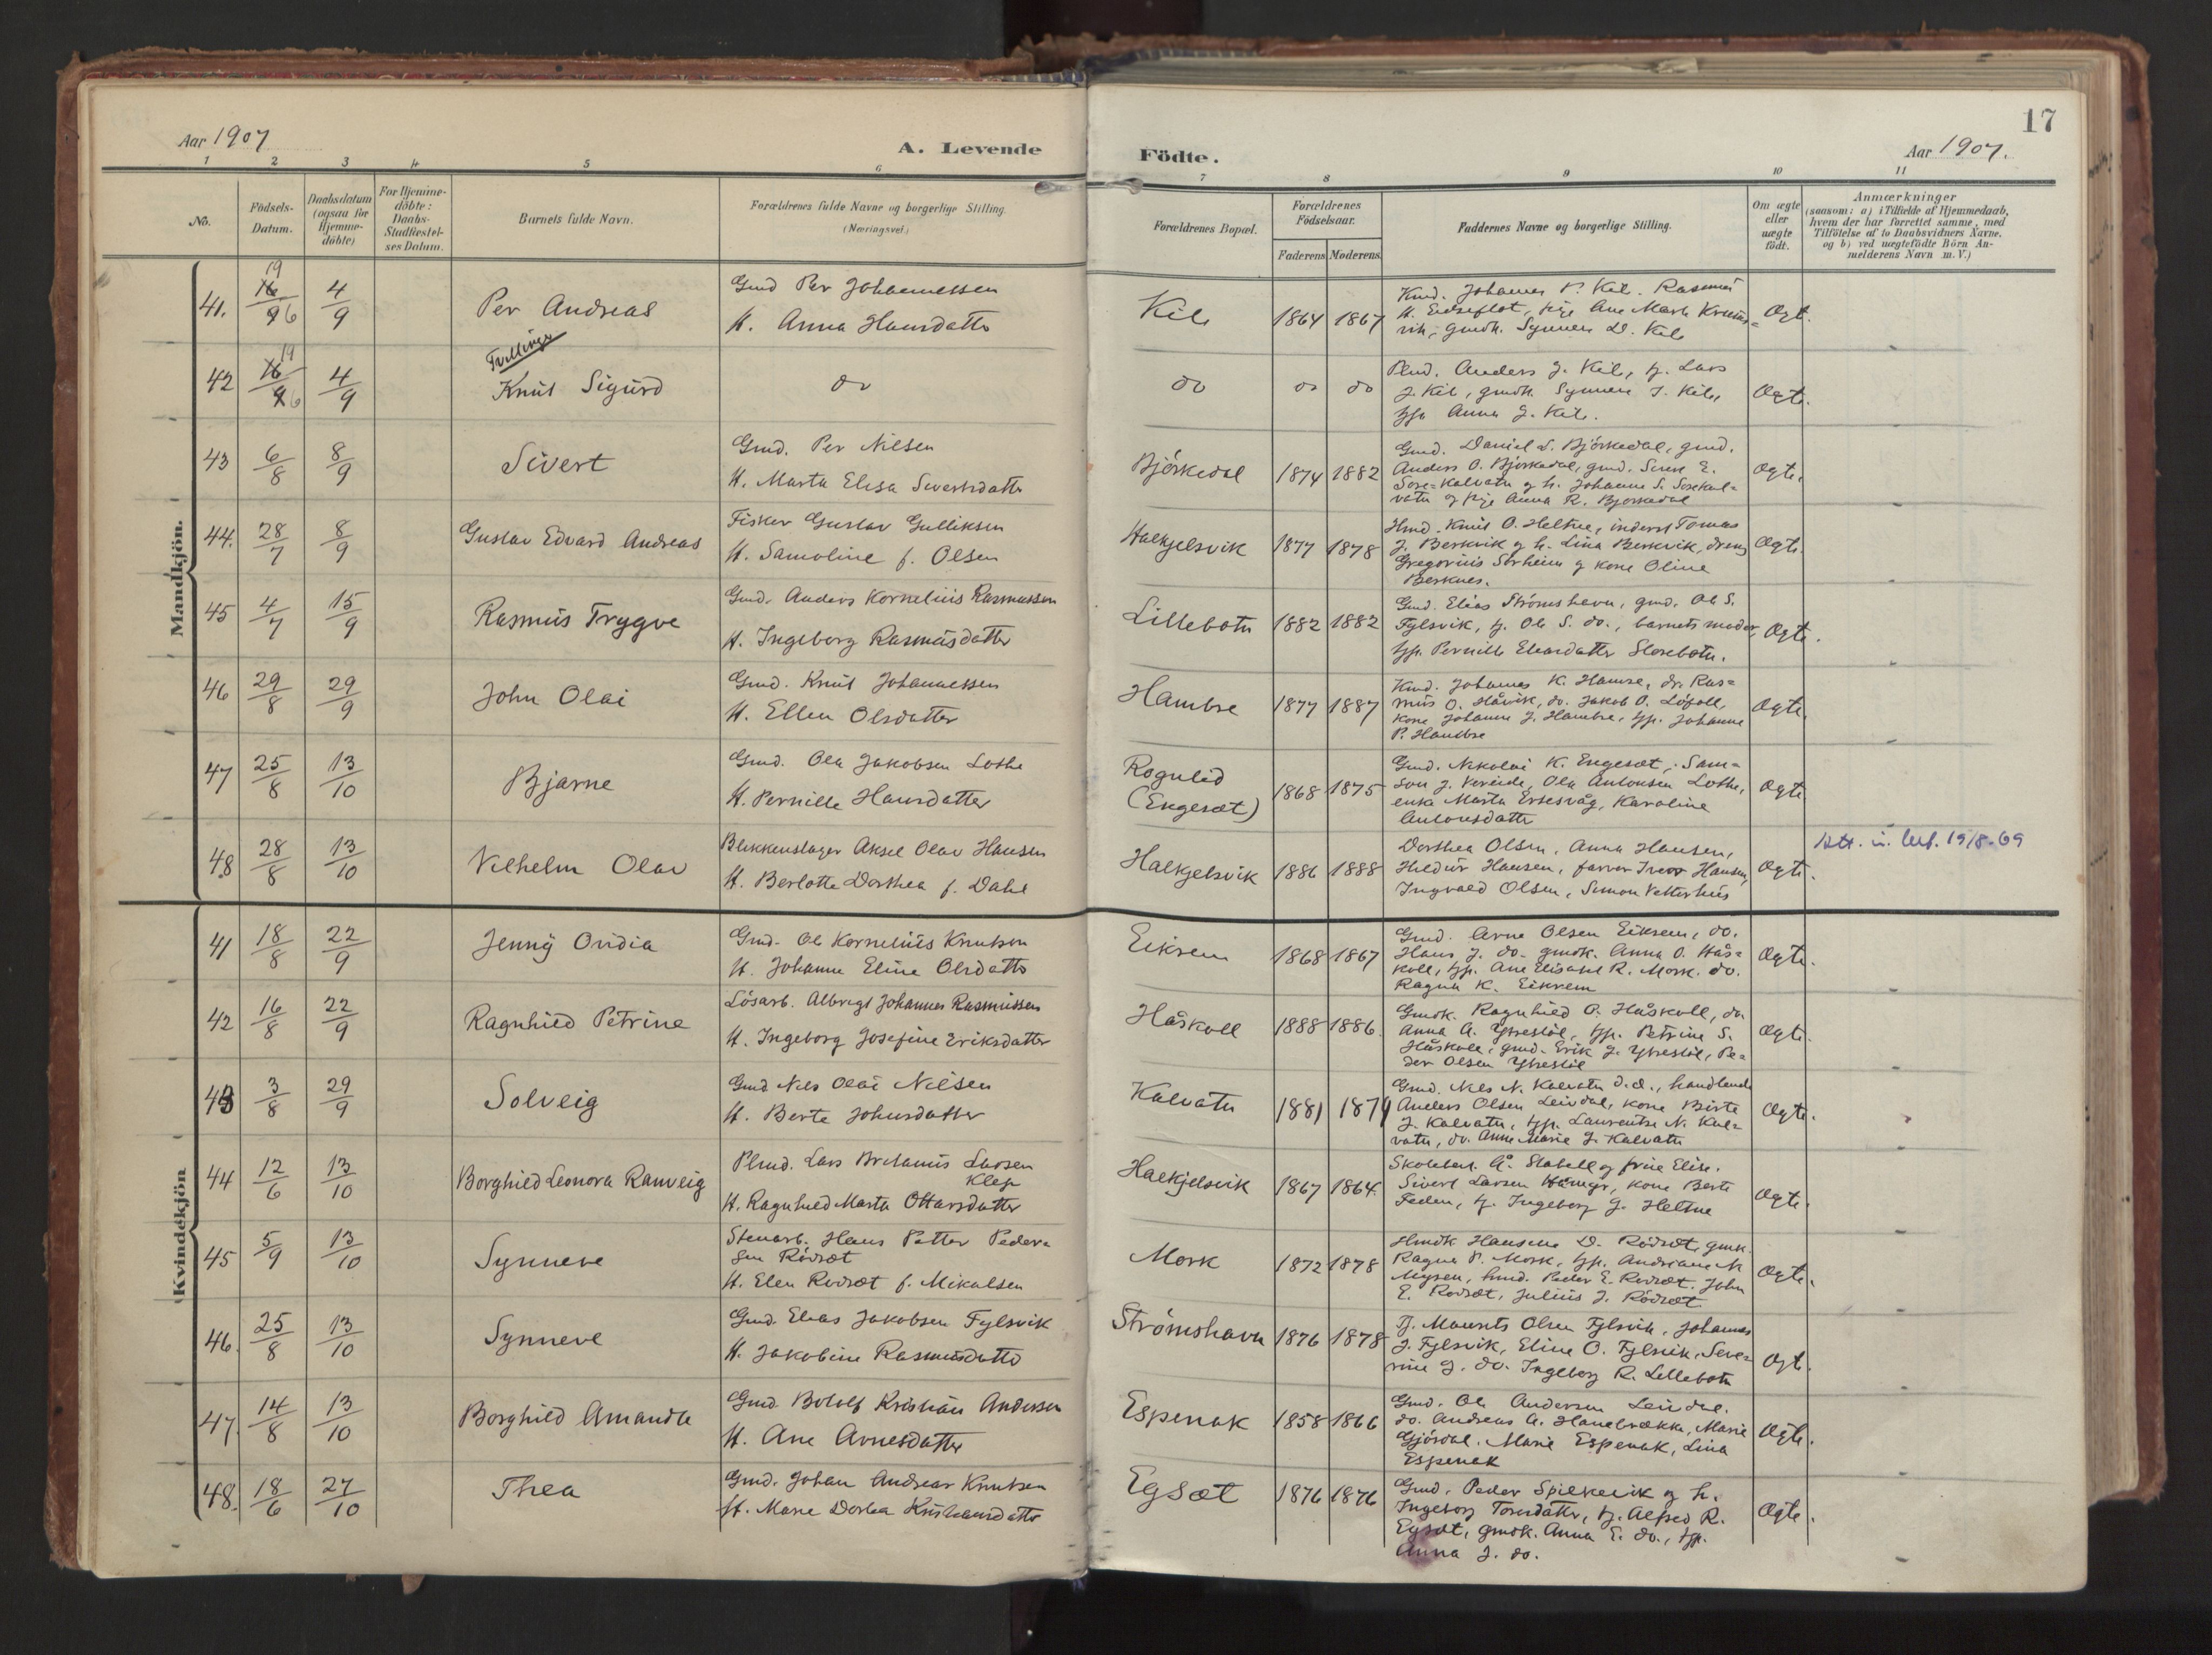 17
Aar 1907
A. Levende
Födte.
Aar 1907.
1 2 3 4 5 6 7 8 9 10 11
No.
Födsels-Datum.
Daabsdatum (ogsaa for Hjemme-döbte)
For Hjemme-döbte: Daabs-Stadfæstel-ses Datum.
Barnets fulde Navn.
Forældrenes fulde Navne og borgerlige Stilling.
(Næringsvei.)
Forældrenes Bopæl.
Forældrenes Födselsaar.
Faderens Moderens
Faddernes Navne og borgerlige Stilling.
Om ægte eller uægte födt.
Anmærkninger
(saasom: a) i Tilfælde af Hjemmedaab,
hvem der har forrettet samme, med
Tilföielse af to Daabsvidners Navne,
og b) ved uægtefödte Börn An-
melderens Navn m. V.)
Mandkjön.
41. 19/6 4/9 Per Andreas
Gmd Per Johannessen
H. Anna Hansdatter
Kile 1864 1867
Kmd. Johannes P. Kile. Rasmus
H. Eidseflot, pige Ane Marte
gmdk. Synneve D. Kile
Ægt.
Tvillinger
42 19/6 4/9 Knut Sigurd
do
do do do
Plmd. Anders J. Kile, tj. Lars
J. Kile, gmdk. Synneve J. Kile,
tjp Anna J. Kile.
Ægte.
43 6/8 8/9 Sivert
Gmd. Per Nilsen
H. Marta Elisa Sivertsdatter
Björkedal 1874 1882
Gmd. Daniel S. Björkedal, gmd.
Anders O. Björkedal, gmd. Sivert E.
Söre-Kalvatn og h. Johanne S. Sörekal-
vatn og pige Anna R. Bjorkedal
Ægte.
44. 28/7 8/9 Gustav Edvard Andreas
Fisker Gustav Gulliksen
H. Samoline f. Olsen
Halkjelsvik 1877 1878
Hmd. Knut O. Heltne, inderst Tomas
J. Berkvik og h. Lina Berkvik, dreng
Gregorius Sörheim og kone Oline
Berknes.
Ægte.
45 4/7 15/9 Rasmus Trygve
Gmd. Anders Kornelius Rasmussen
H. Ingeborg Rasmusdatter
Lillebotn 1882 1882
Gmd. Elias Strömshavn, gmd. Ole S.
Fylsvik, tj. Ole S. do., barnets moder,
tjp. Pernille Eliasdatter Storebotn.
Ægte.
46 29/8 29/9 John Olai
Gmd. Knut Johannessen
H. Ellen Olsdatter
Hambre 1877 1887
Kmd. Johannes K. Hamre, do. Ras-
mus O. Håvik, do. Jakob O. Löfoll,
kone Johanne J. Hambre, tjp. Johanne
P. Hambre
Ægte.
47 25/8 13/10 Bjarne
Gmd. Ola Jakobsen Lothe
H. Pernille Hansdatter
Rognlid
(Engesæt) 1868 1875
Gmd. Nikolai K. Engesæt, Sam-
son J. Vereide, Ola Antonsen Lothe,
enke Marta Ervesvåg, Karoline
Antonsdatter
Ægte
48 28/8 13/10 Vilhelm Olav
Blikkenslager Aksel Olav Hansen
H. Berlotte Dorthea f. Dahl
Halkjelsvik 1886 1888
Dorthea Olsen, Anna Hansen,
Hildur Hansen, farver Iver Hansen,
Ingvald Olsen, Simon Vatterhus
Ægte.
Att. u. 19/8-69
Kvindekjön
41 18/8 22/9 Jenny Ovidia
Gmd. Ole Kornelius Knutsen
H. Johanne Eline Olsdatter
Eikrem 1868 1867
Gmd. Arne Olsen Eikrem, do.
Hans J. do. gmdk. Anna O. Hås-
koll, tjp. Ane Elisabet R. Mork. do.
Ragna K. Eikrem
Ægte.
42 16/8 22/9 Ragnhild Petrine
Lösarb. Albregt Johannes Rasmussen
H. Ingeborg Josefine Eriksdatter
Håskoll 1888 1886.
Gmdk. Ragnhild O. Håskoll, do.
Anna A. Ytrestöl, tjp. Petrine S.
Håskoll, gmd. Erik J. Ytrestöl, Pe-
der Olsen Ytrestöl
Ægte.
43 3/8 29/9 Solveig
Gmd Nils Olai Nilsen
H. Berte Johnsdatter
Kalvatn 1881 1879
Gmd. Nils N. Kalvatn d.æ., handlende
Anders Olsen Leivdal, kone Birte
J. Kalvatn, tjp. Laurentse N. Kal-
vatn, do. Anne Marie J. Kalvatn
Ægte.
44 12/6 13/10 Borghild Leonora Ranveig
Plmd. Lars Larsen
Klep
H. Ragnhild Marta Ottarsdatter
Halkjelsvik 1867 1864.
Skolebest. Å. Stabell og frue Elise.
Sivert Larsen kone Berte
Feden, tj. Ingeborg J. Heltne
Ægte.
45 5/9 13/10 Synneve
Stenarb. Hans Petter Peder-
sen Rödsæt
H. Elen Rödsæt f. Mikalsen
Mork 1872 1878
Hmdk Hansine D. Rödsæt, gmk.
Ragna P. Mork, tjp. Andriane M
Myren, hmd. Peder E. Rodsæt, John
E. Rodsæt, Julius J. Rödsæt
Ægte.
46. 25/8 13/10 Synneve
Gmd. Elias Jakobsen Fylsvik
H. Jakobine Rasmusdatter
Strömshavn 1876 1878
Tj. Maurits Olsen Fylsvik, Johannes
J. Fylsvik, Eline O. Fylsvik, Seve-
rine J. do. Ingeborg R. Lillebotn
Ægte.
47. 14/8 13/10 Borghild Amanda
Gmd. Botolf Kristian Andersen
H. Ane Arnesdatter
Espenak 1858 1866
Gmd. Ole Andersen Leivdal.
do. Andreas A. Hanebrække, Marie
Gjördal, Marie Espenak, Lina
Espenak
Ægte.
48. 18/6 27/10 Thea
Gmd. Johan Andreas Knutsen
H. Marie Dorthea Kristiansdatter
Egsæt 1876 1876
Gmd. Peder Spilkevik og h.
Ingeborg Tomsdatter, tj. Alfred R.
Egsæt, gmdk. Anna E. do., tjp.
Anna J. do.
Ægte.